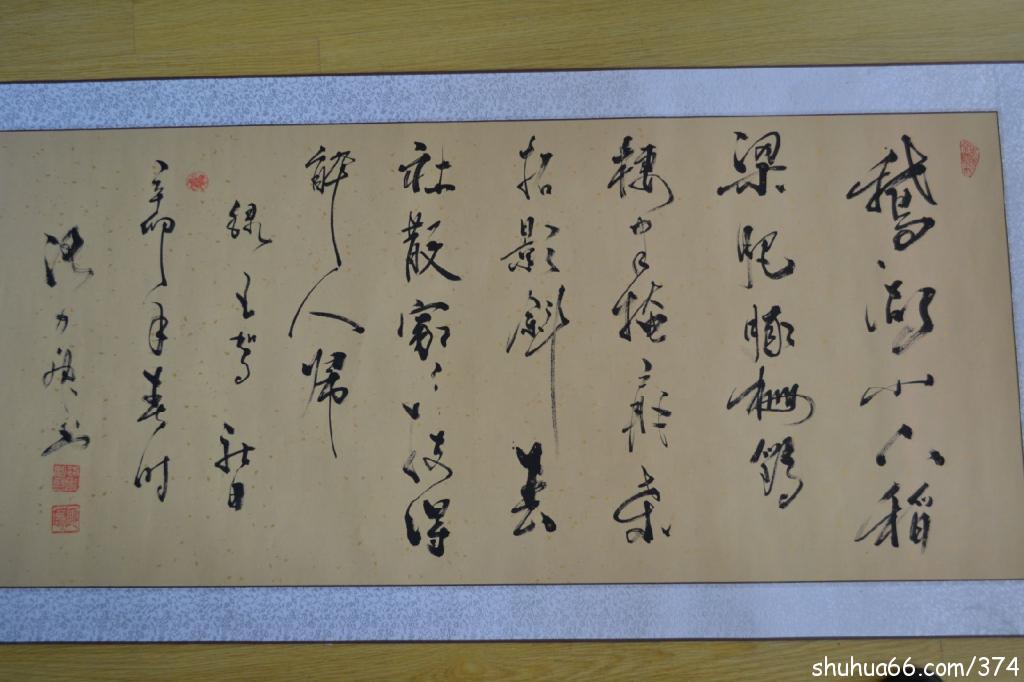 鹅湖山下稻
梁肥豚栅鸡
棲半掩扉桑
柘影斜春
社散家〻扶得
醉人歸
録王驾社日
辛卯年春时
shuhua66.com/374